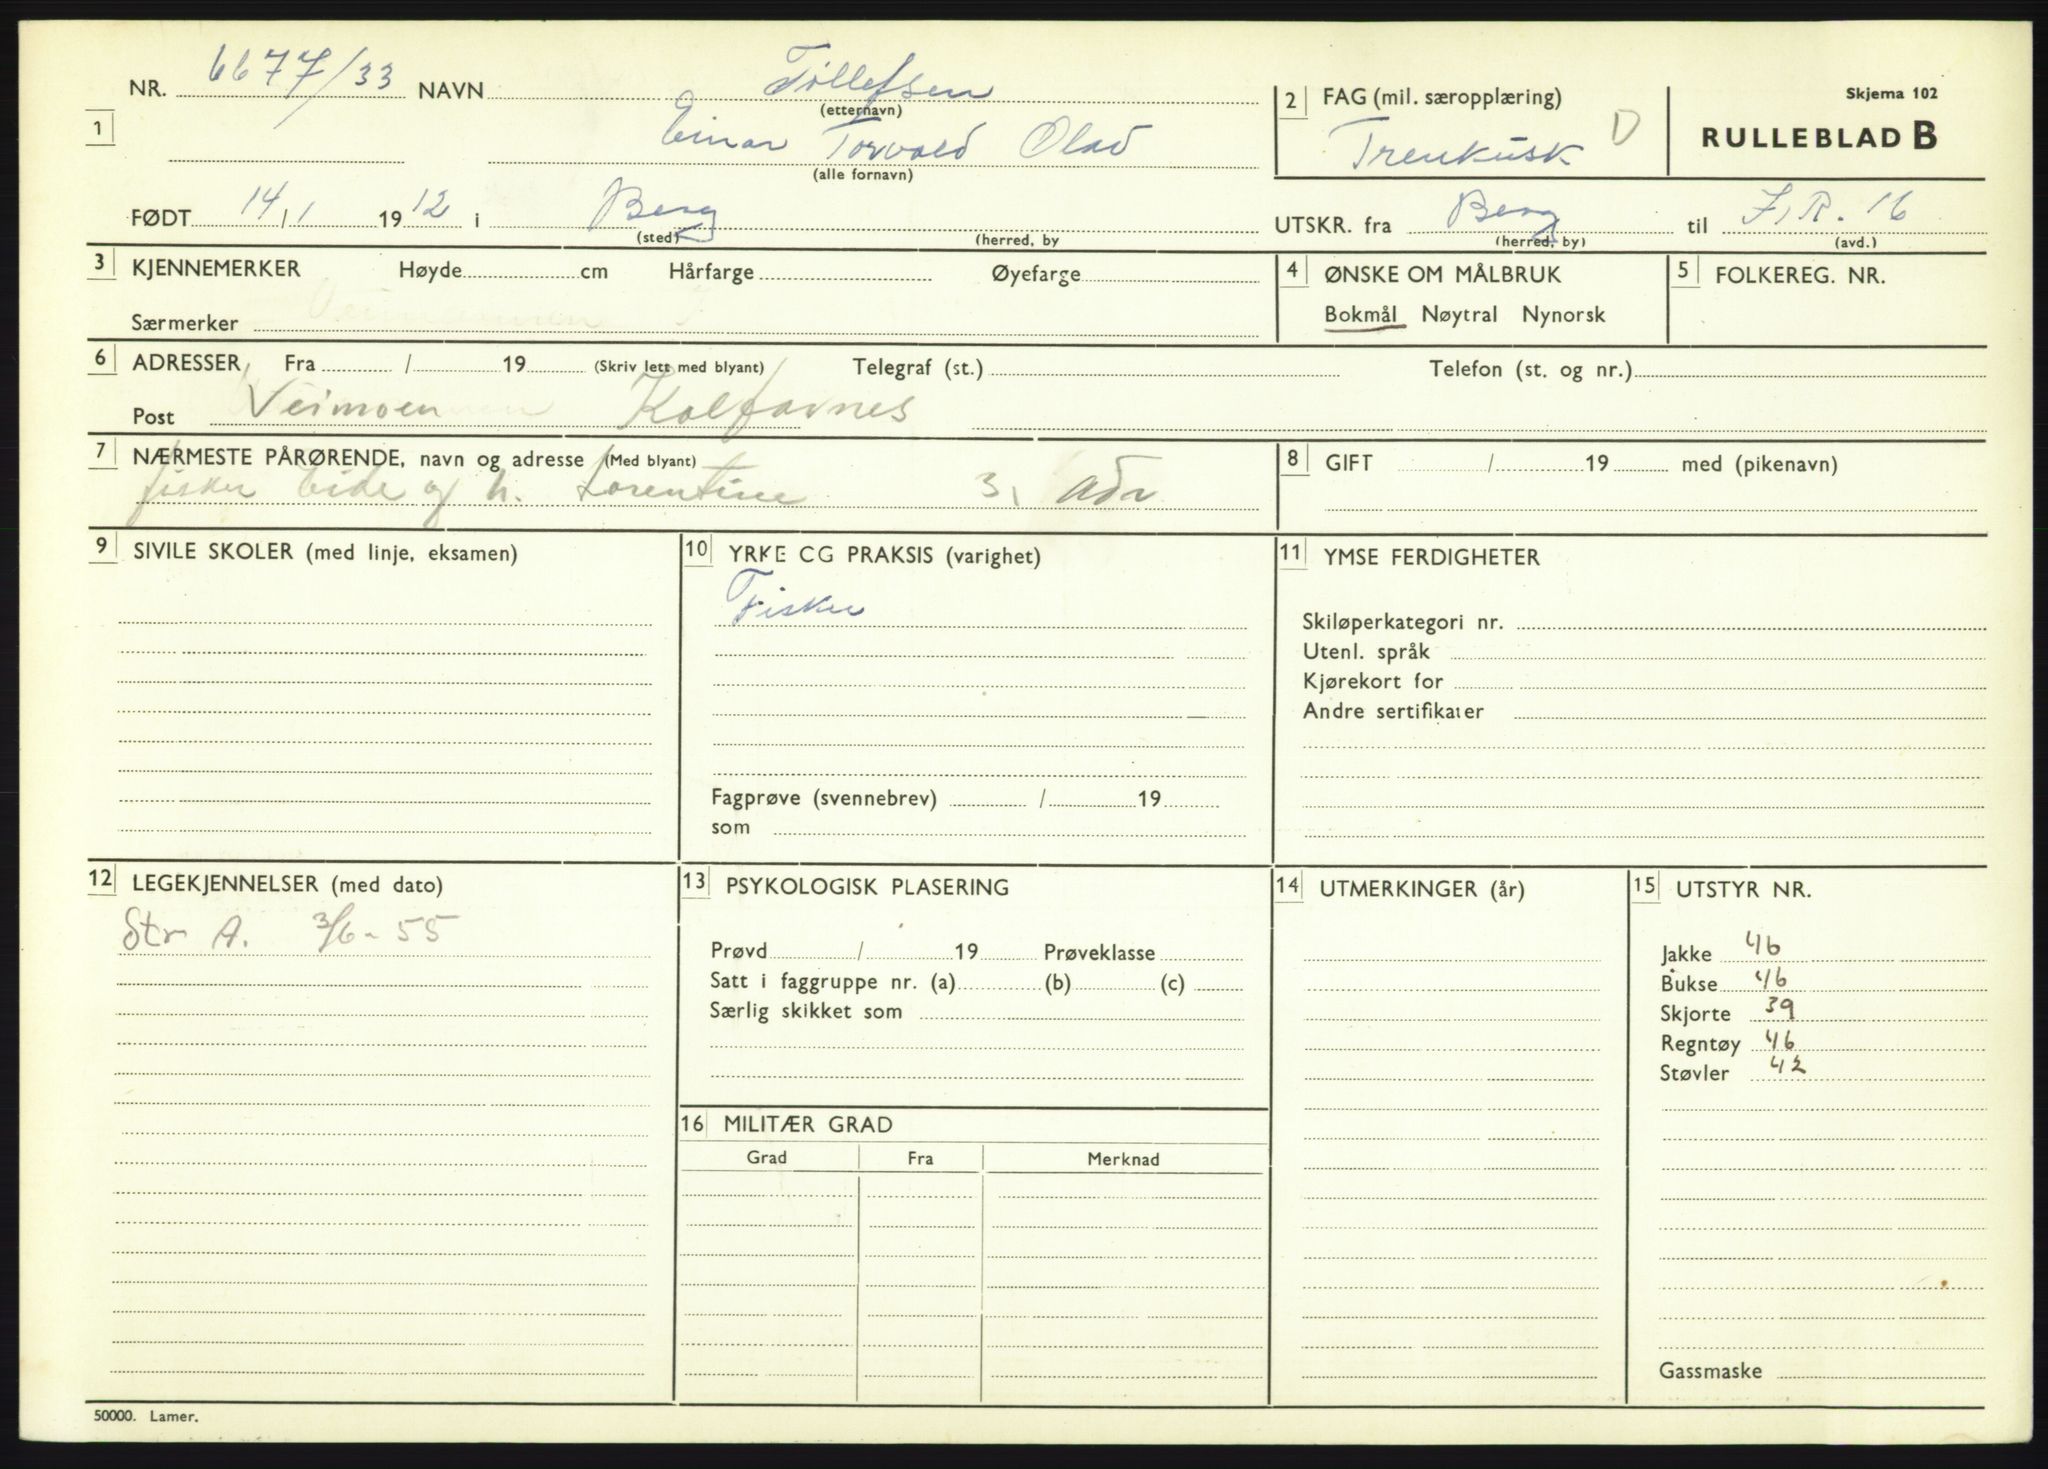 NR. 6677/33 NAVN Tollefsen
(etternavn)
1 Einar Torvald Olav
(alle fornavn)
FØDT 14/1 1912 i Berg
(sted) (herred, by
2 FAG (mil. særopplæring)
Trenkusk D
Skjema 102
RULLEBLAD B
UTSKR. fra Berg til I.R. 16
(herred, by) (avd.)
3 KJENNEMERKER Høyde cm Hårfarge Øyefarge
Særmerker
4 ØNSKE OM MÅLBRUK
Bokmål Nøytral Nynorsk
5 FOLKEREG. NR.
6 ADRESSER, Fra / 19 (Skriv lett med blyant) Telegraf (st.) Telefon (st. og nr.)
Post Veimoen Kalfarnes
7 NÆRMESTE PÅRØRENDE, navn og adresse (Med blyant)
fisker Eide og h. Lorentine s. adr
8 GIFT / 19 med (pikenavn)
9 SIVILE SKOLER (med linje, eksamen)
10 YRKE CG PRAKSIS (varighet)
Fisker
Fagprøve (svennebrev) / 19
som
11 YMSE FERDIGHETER
Skiløperkategori nr.
Utenl. språk
Kjørekort for
Andre sertifikater
12 LEGEKJENNELSER (med dato)
Str A. 3/6-55
13 PSYKOLOGISK PLASERING
Prøvd / 19 Prøveklasse
Satt i faggruppe nr. (a) (b) (c)
Særlig skikket som
14 UTMERKINGER (år)
15 UTSTYR NR.
Jakke 46
Bukse 46
Skjorte 39
Regntøy 46
Støvler 42
Gassmaske
16 MILITÆR GRAD
Grad Fra Merknad
50000. Lamer.